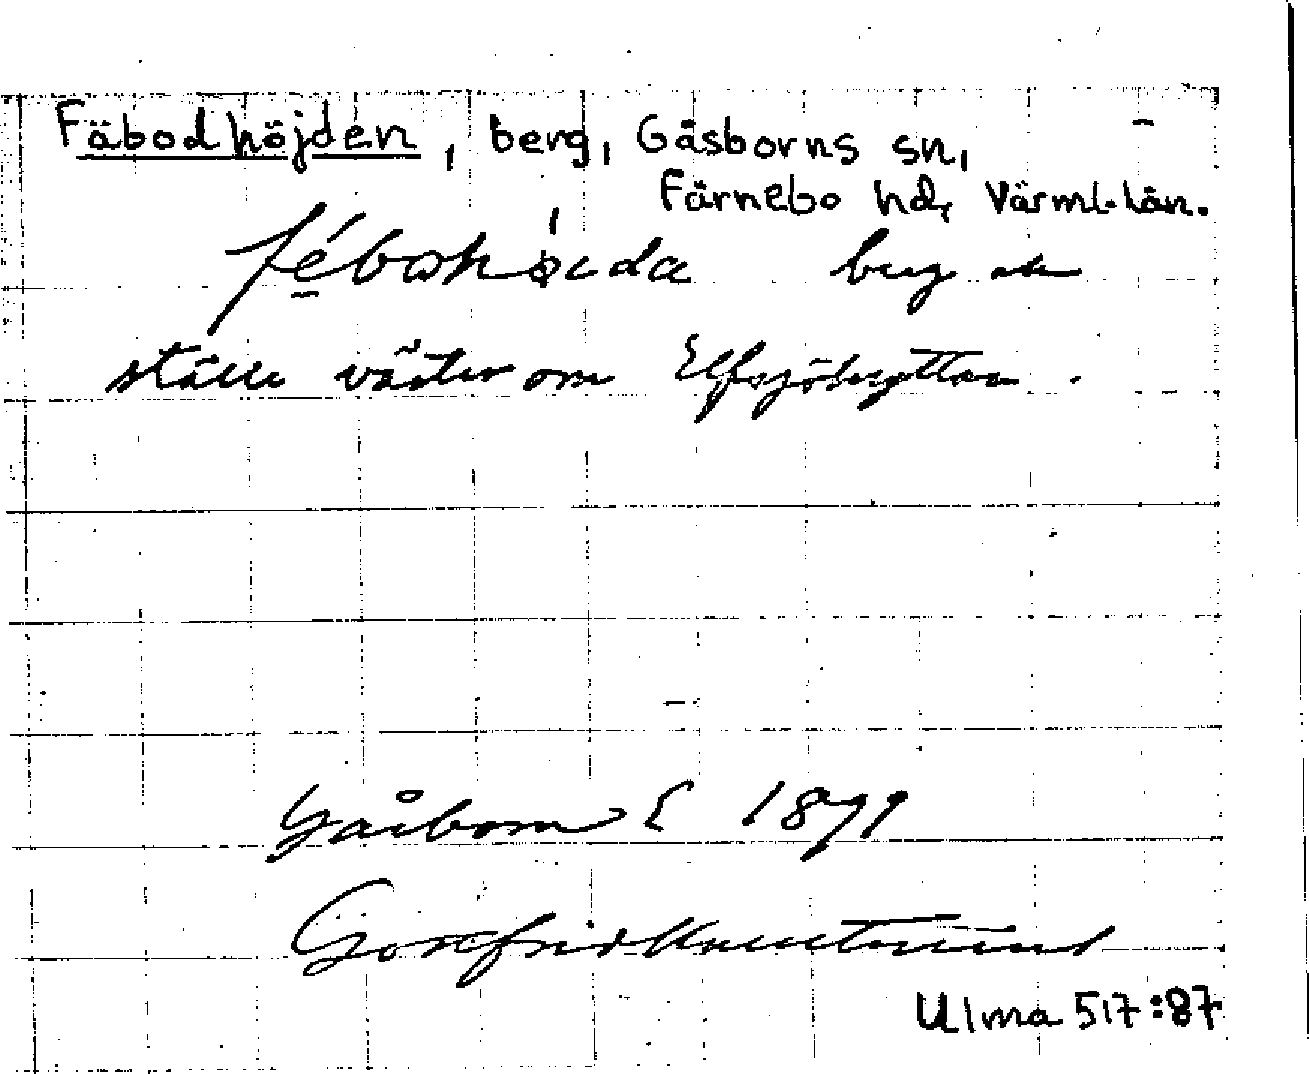 Fäbodhöjden, berg, Gåsborns sn,
Färnebo hd, Värml. län.
fébohöida berg ett
ställe väster om Elfsjöhyttan.
Gåsborn 1879
Gottfrid
Ulma 517:87